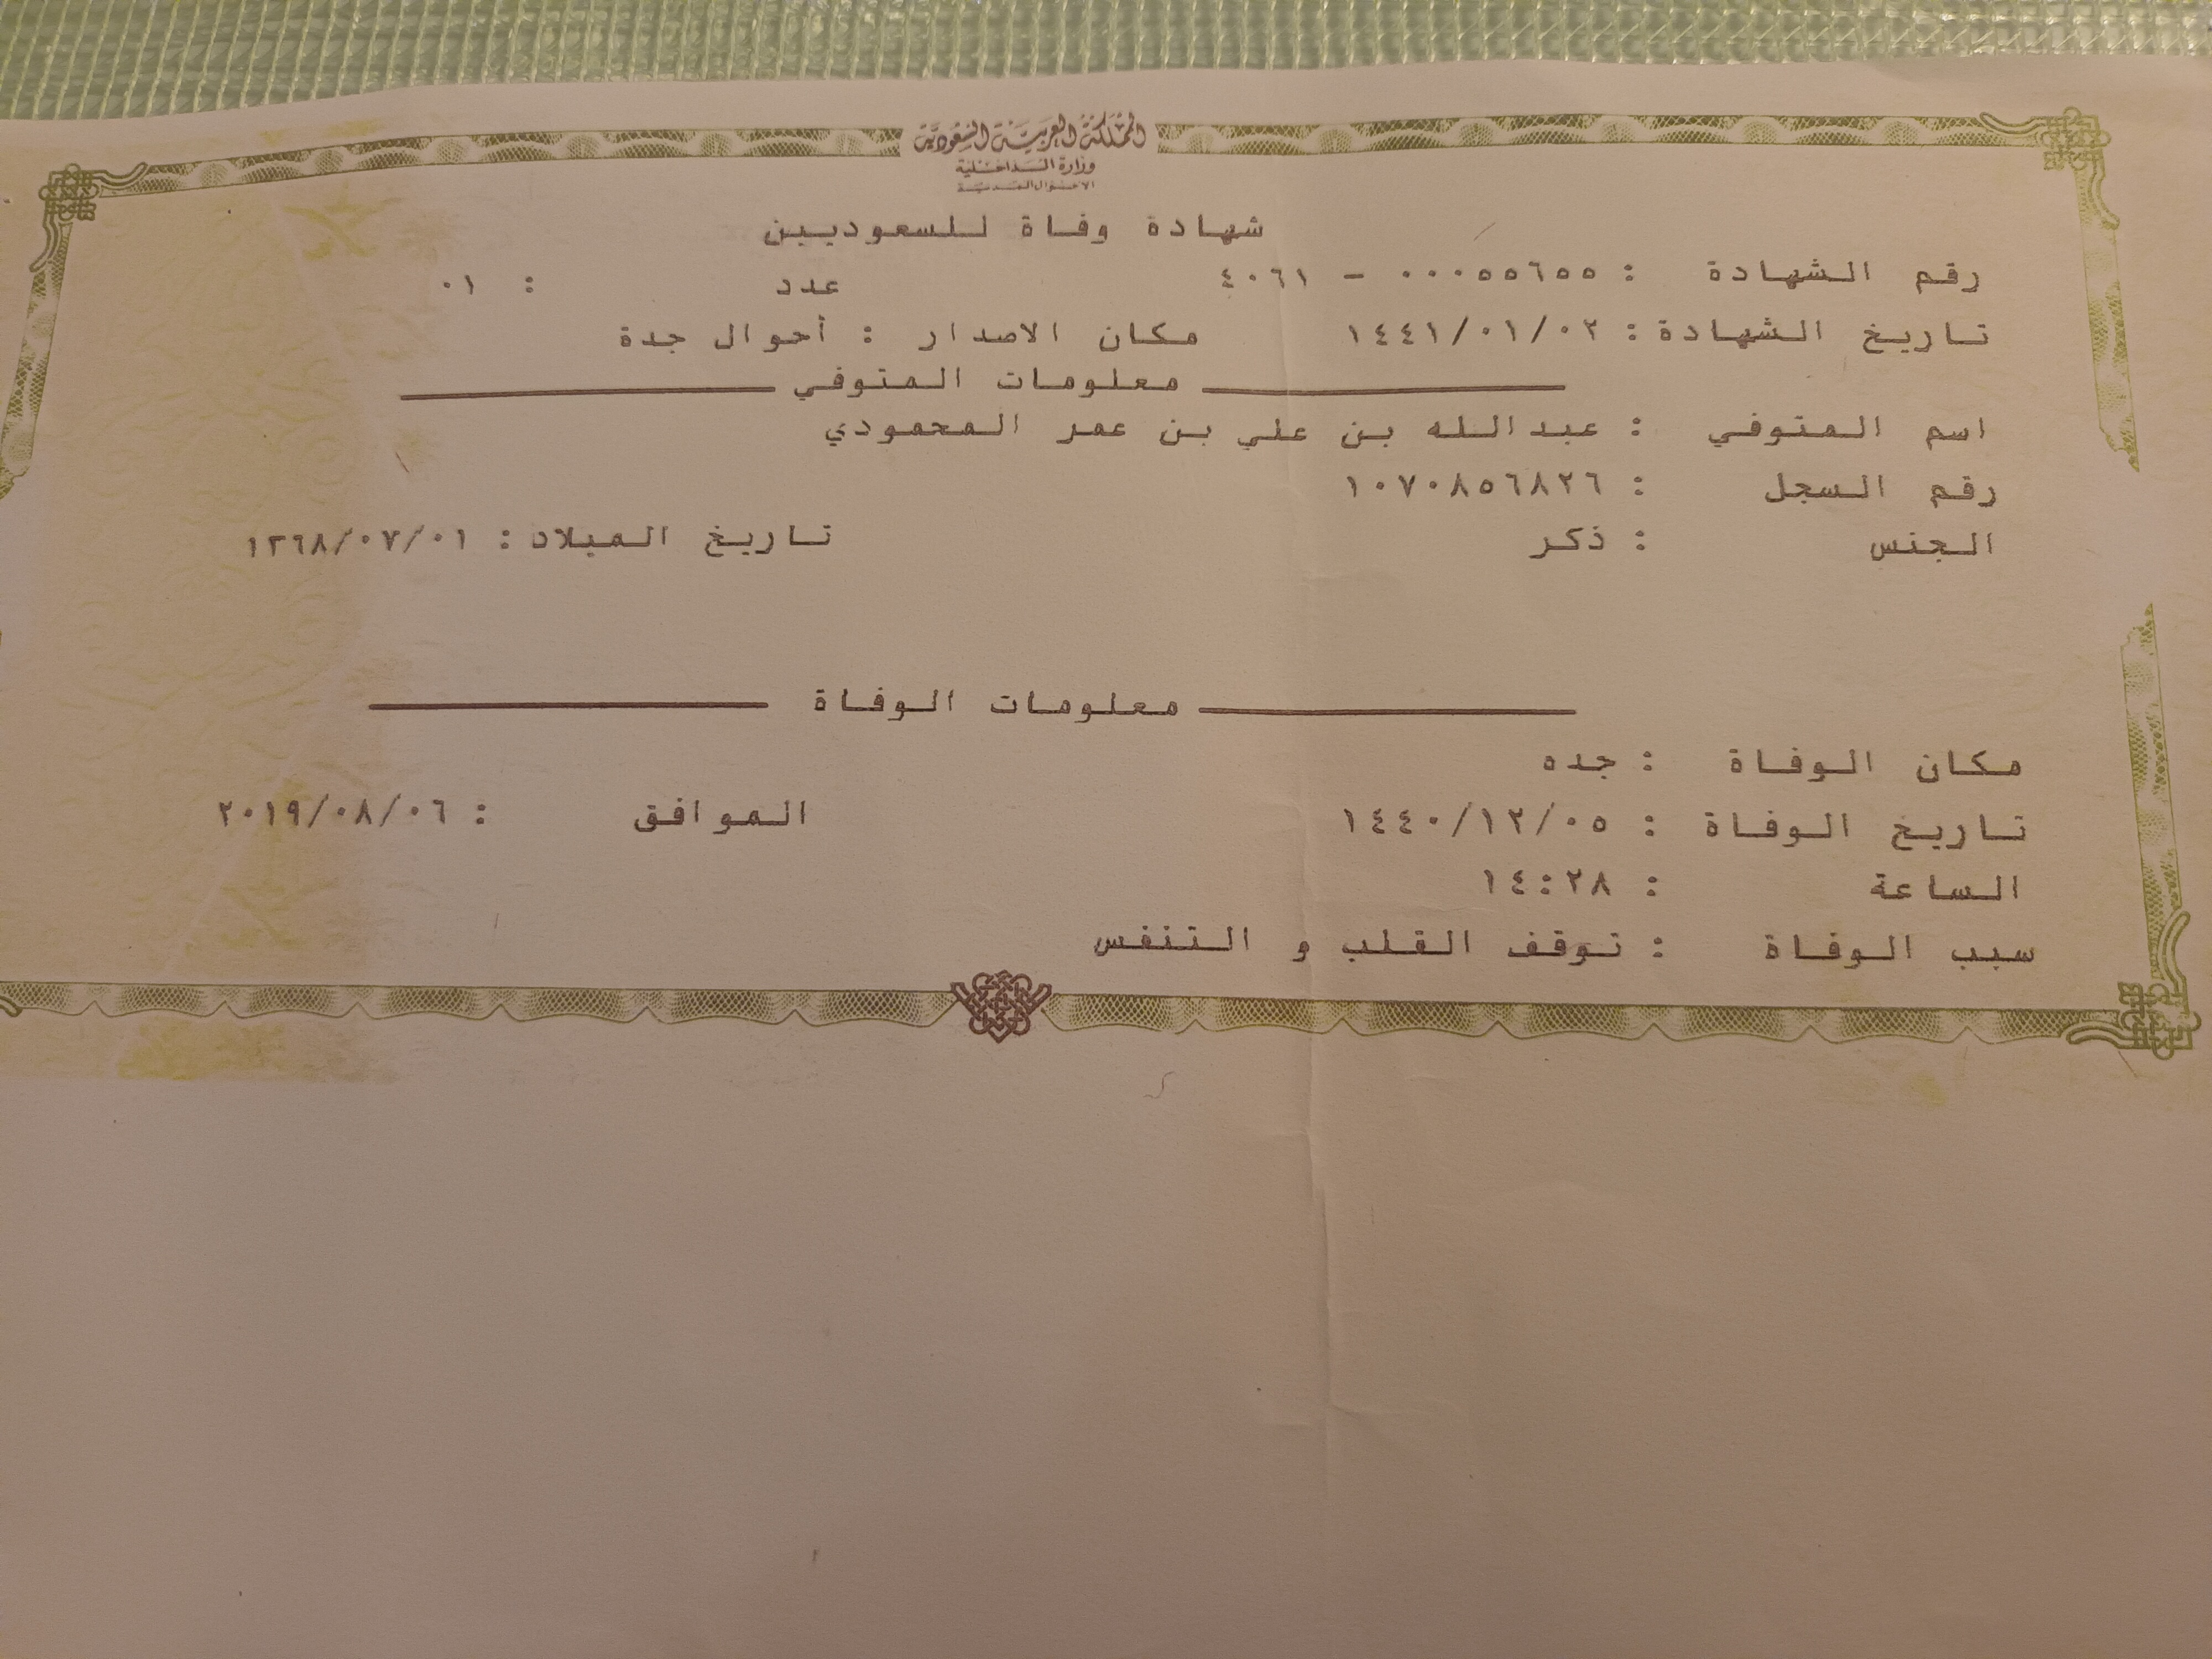 المملكة العربية السعودية
وزارة الداخلية
الاحوال المدنية
شهادة وفاة للسعوديين
رقم الشهادة : ٠٠٠٥٥٦٥٥ - ٤٠٦١ عدد : ٠١
تاريخ الشهادة : ١٤٤١/٠١/٠٢ مكان الاصدار : أحوال جدة
معلومات المتوفي
اسم المتوفي : عبدالله بن علي بن عمر المحمودي
رقم السجل : ١٠٧٠٨٥٦٨٢٦
الجنس : ذكر تاريخ الميلاد : ١٣٦٨/٠٧/٠١
معلومات الوفاة
مكان الوفاة : جده
تاريخ الوفاة : ١٤٤٠/١٢/٠٥ الموافق : ٢٠١٩/٠٨/٠٦
الساعة : ١٤:٢٨
سبب الوفاة : توقف القلب و التنفس